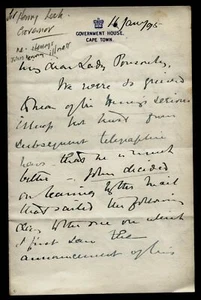 Sir Henry Loch
Governor
16 Jan/95
GOVERNMENT HOUSE,
CAPE TOWN.
My dear Lady
We were so grieved
to hear of Sir Henry's serious
illness but have from
subsequent telegraphic
news that he is much
better John decided
on leaving by the Mail
that sailed the following
day to the one on which
I first saw the
announcement of his